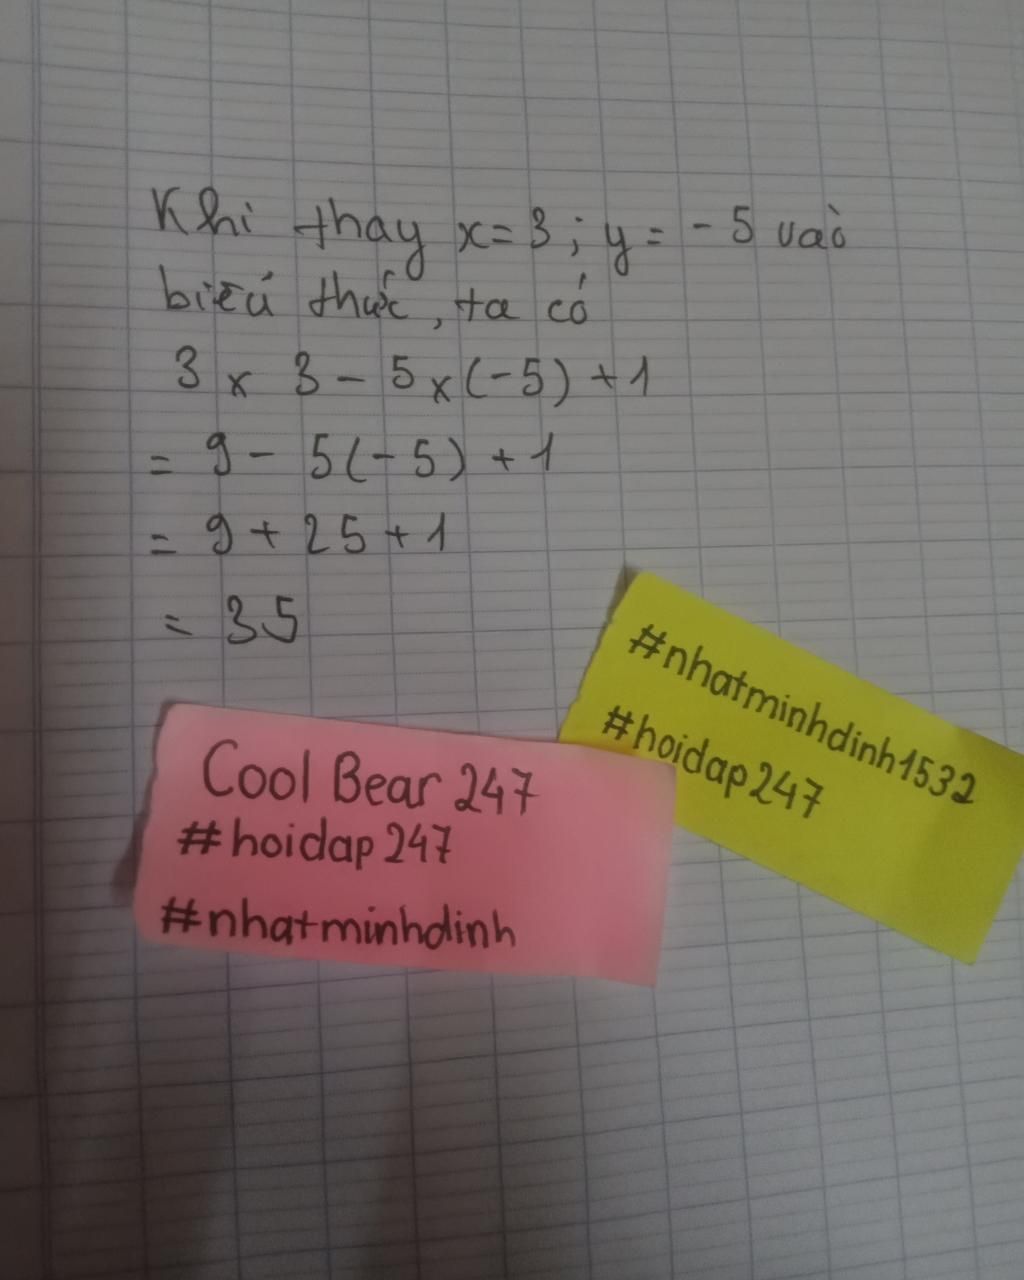 Khi thay x = 3 ; y = - 5 vaò
biểú thức, ta có
3 x 3 - 5 x (-5) + 1
= 9 - 5(-5) + 1
= 9 + 25 + 1
= 35
#nhatminhdinh1532
#hoidap247
Cool Bear 247
#hoidap 247
#nhatminhdinh